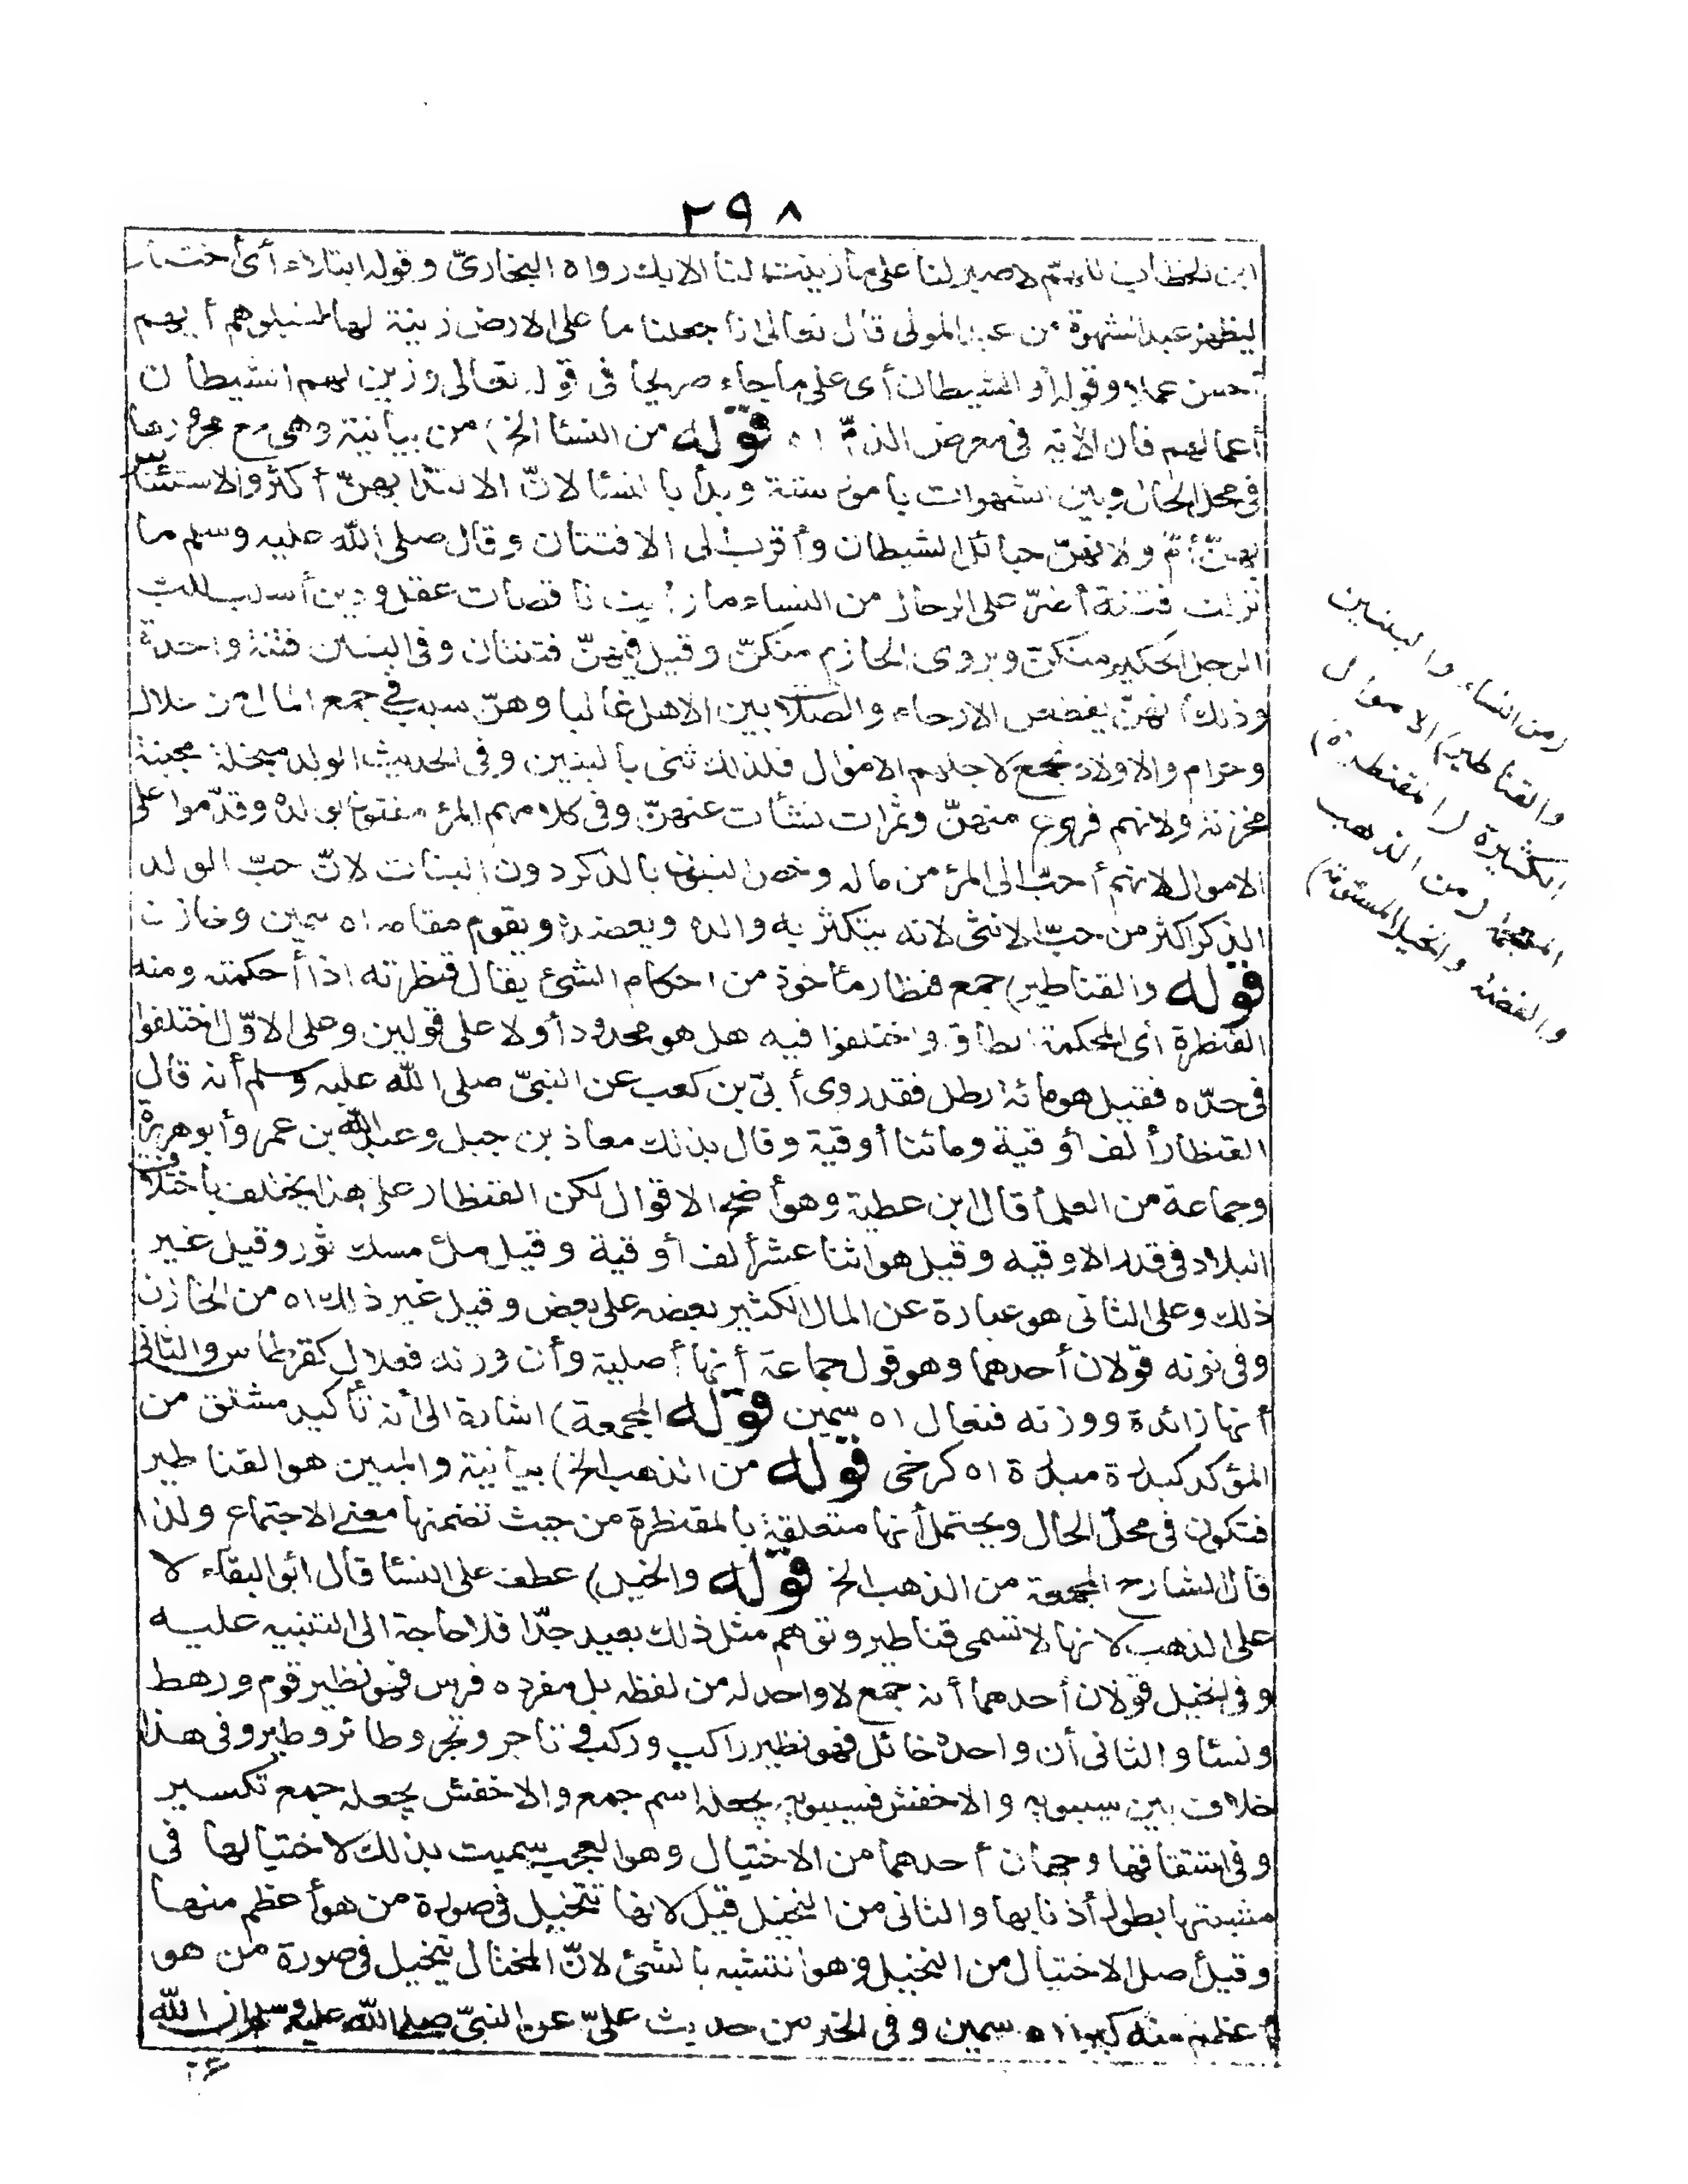 ٢٩٨
ابن الخطاب اللهم لا صبر لنا على ما زينت لنا الا بك رواه البخاريّ وقوله ابتلاء أى اختبار
ليظهر عبد الشهوة من عبد المولى قال تعالى انا جعلنا ما على الارض زينة لها لنبلوهم أيهم
أحسن عملا وقوله أو الشيطان أى على ما جاء صريحا فى قوله تعالى وزين لهم الشيطان
أعمالهم فان الآية فى معرض الذمّ اه قوله من النسا الخ) من بيانية وهى مع مجرورها
فى محل الحال وبين الشهوات بأمور ستة وبدأ بالنسا لانّ الالتذا بهنّ أكثر والاستئنا س
بهنّ أتمّ ولانهنّ حبائل الشيطان وأقرب الى الافتتان وقال صلى الله عليه وسلم ما
تركت فتنة أضرّ على الرجال من النساء ما رأيت ناقصات عقل ودين أسلب للب
الرجل الحكيم منكنّ ويروى الحازم منكنّ وقيل فيهنّ فتنتان وفى البنين فتنة واحدة
وذلك أنهنّ يقطعن الارحام والصلا بين الاهل غالبا وهنّ سبب فى جمع المال من حلال
وحرام والاولاد تجمع لاجلهم الاموال فلذلك ثنى بالبنين وفى الحديث الولد مبخلة مجبنة
محزنة ولانهم فروع منهنّ وثمرات نشأت عنهنّ وفى كلامهم المرؤ مفتون بولده وقدّموا على
الاموال لانهم أحبّ الى المرء من ماله وخص البنون بالذكر دون البنات لانّ حبّ الولد
الذكر اكثر من حبّ الانثى لانه يتكثر به والده ويعضده ويقوم مقامه اه سمين وخازن
قوله والقناطير) جمع قنطار مأخوذ من احكام الشئ يقال قنطرته اذا أحكمته ومنه
القنطرة أى المحكمة الطاق واختلفوا فيه هل هو محدود أولا على قولين وعلى الاوّل اختلفوا
فى حدّه فقيل هو مائة رطل فقد روى أبىّ بن كعب عن النبىّ صلى الله عليه وسلم أنه قال
القنطار ألف أوقية ومائتا أوقية وقال بذلك معاذ بن جبل وعبد الله بن عمر وأبو هريرة
وجماعة من العلمأ قال ابن عطية وهو أصح الاقوال لكن القنطار على هذا يختلف باختلاف
البلاد فى قدر الاوقيه وقيل هو اثنا عشر ألف أوقية وقيل ملئ مسك ثور وقيل غير
ذلك وعلى الثانى هو عبارة عن المال الكثير بعضه على بعض وقيل غير ذلك اه من الخازن
وفى نونه قولان أحدهما وهو قول جماعة أنها أصلية وأن وزنه فعلال كقرطاس والثانى
أنها زائدة ووزنه فنعال اه سمين قوله المجمعة) اشارة الى أنه تأكيد مشتق من
المؤكد كبدرة مبدرة اه كرخى قوله من الذهب الخ) بيانية والمبين هو القناطير
فتكون فى محلّ الحال ويحتمل أنها متعلقة بالمقنطرة من حيث تضمنها معنى الاجتماع ولذا
قال الشارح المجمعة من الذهب الخ قوله والخيل) عطف على النسا قال أبو البقاء لا
على الذهب لانها لا تسمى قناطير وتوهم مثل ذلك بعيد جدّا فلا حاجة الى التنبيه عليه
وفى الخيل قولان أحدهما أنه جمع لا واحد له من لفظه بل مفرده فرس فهو نظير قوم ورهط
ونسا والثانى أن واحده خائل فهو نظير راكب وركب وتاجر وتجر وطائر وطير وفى هذا
خلاف بين سيبويه والاخفش فسيبويه يجعله اسم جمع والاخفش يجعله جمع تكسير
وفى اشتقاقها وجهان أحدهما من الاختيال وهو العجب سميت بذلك لاختيالها فى
مشيتها بطول أذنابها والثانى من التخيل قيل لانها تتخيل فى صورة من هو أعظم منها
وقيل أصل الاختيال من التخيل وهو التشبه بالشئ لانّ المختال يتخيل فى صورة من هو
أعظم منه كبرا اه سمين وفى الخبر من حديث علىّ عن النبىّ صلى الله عليه وسلم ان الله
(من النساء والبنين
والقناطير) الاموال
الكثيرة (المقنطرة)
المجمعة (من الذهب
والفضة والخيل المسومة)